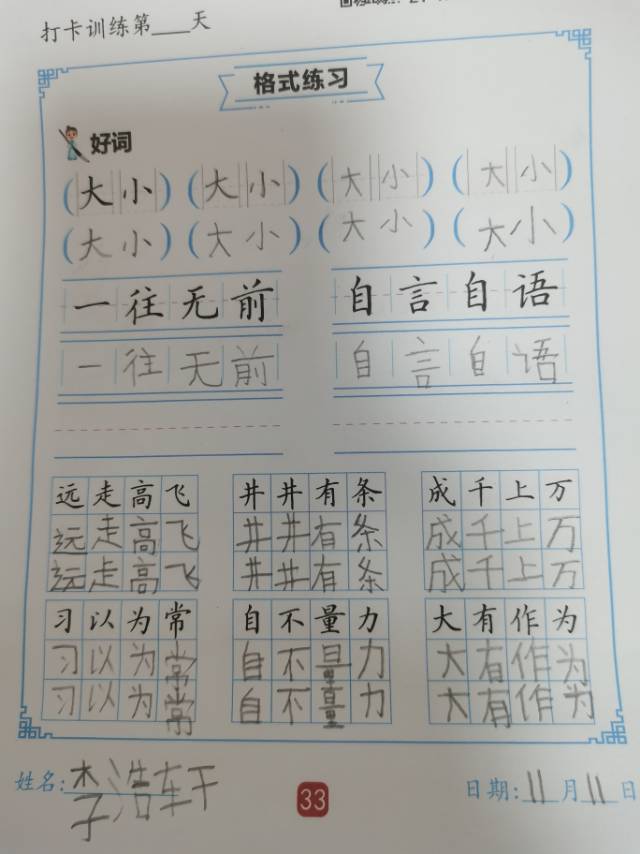 打卡训练第___天
格式练习
好词
(大小) (大小) (大小) (大小)
(大小) (大小) (大小) (大小)
一往无前 自言自语
一往无前 自言自语
远走高飞 井井有条 成千上万
远走高飞 井井有条 成千上万
远走高飞 井井有条 成千上万
习以为常 自不量力 大有作为
习以为常 自不量力 大有作为
习以为常 自不量力 大有作为
姓名:李浩轩 日期:11月11日
33